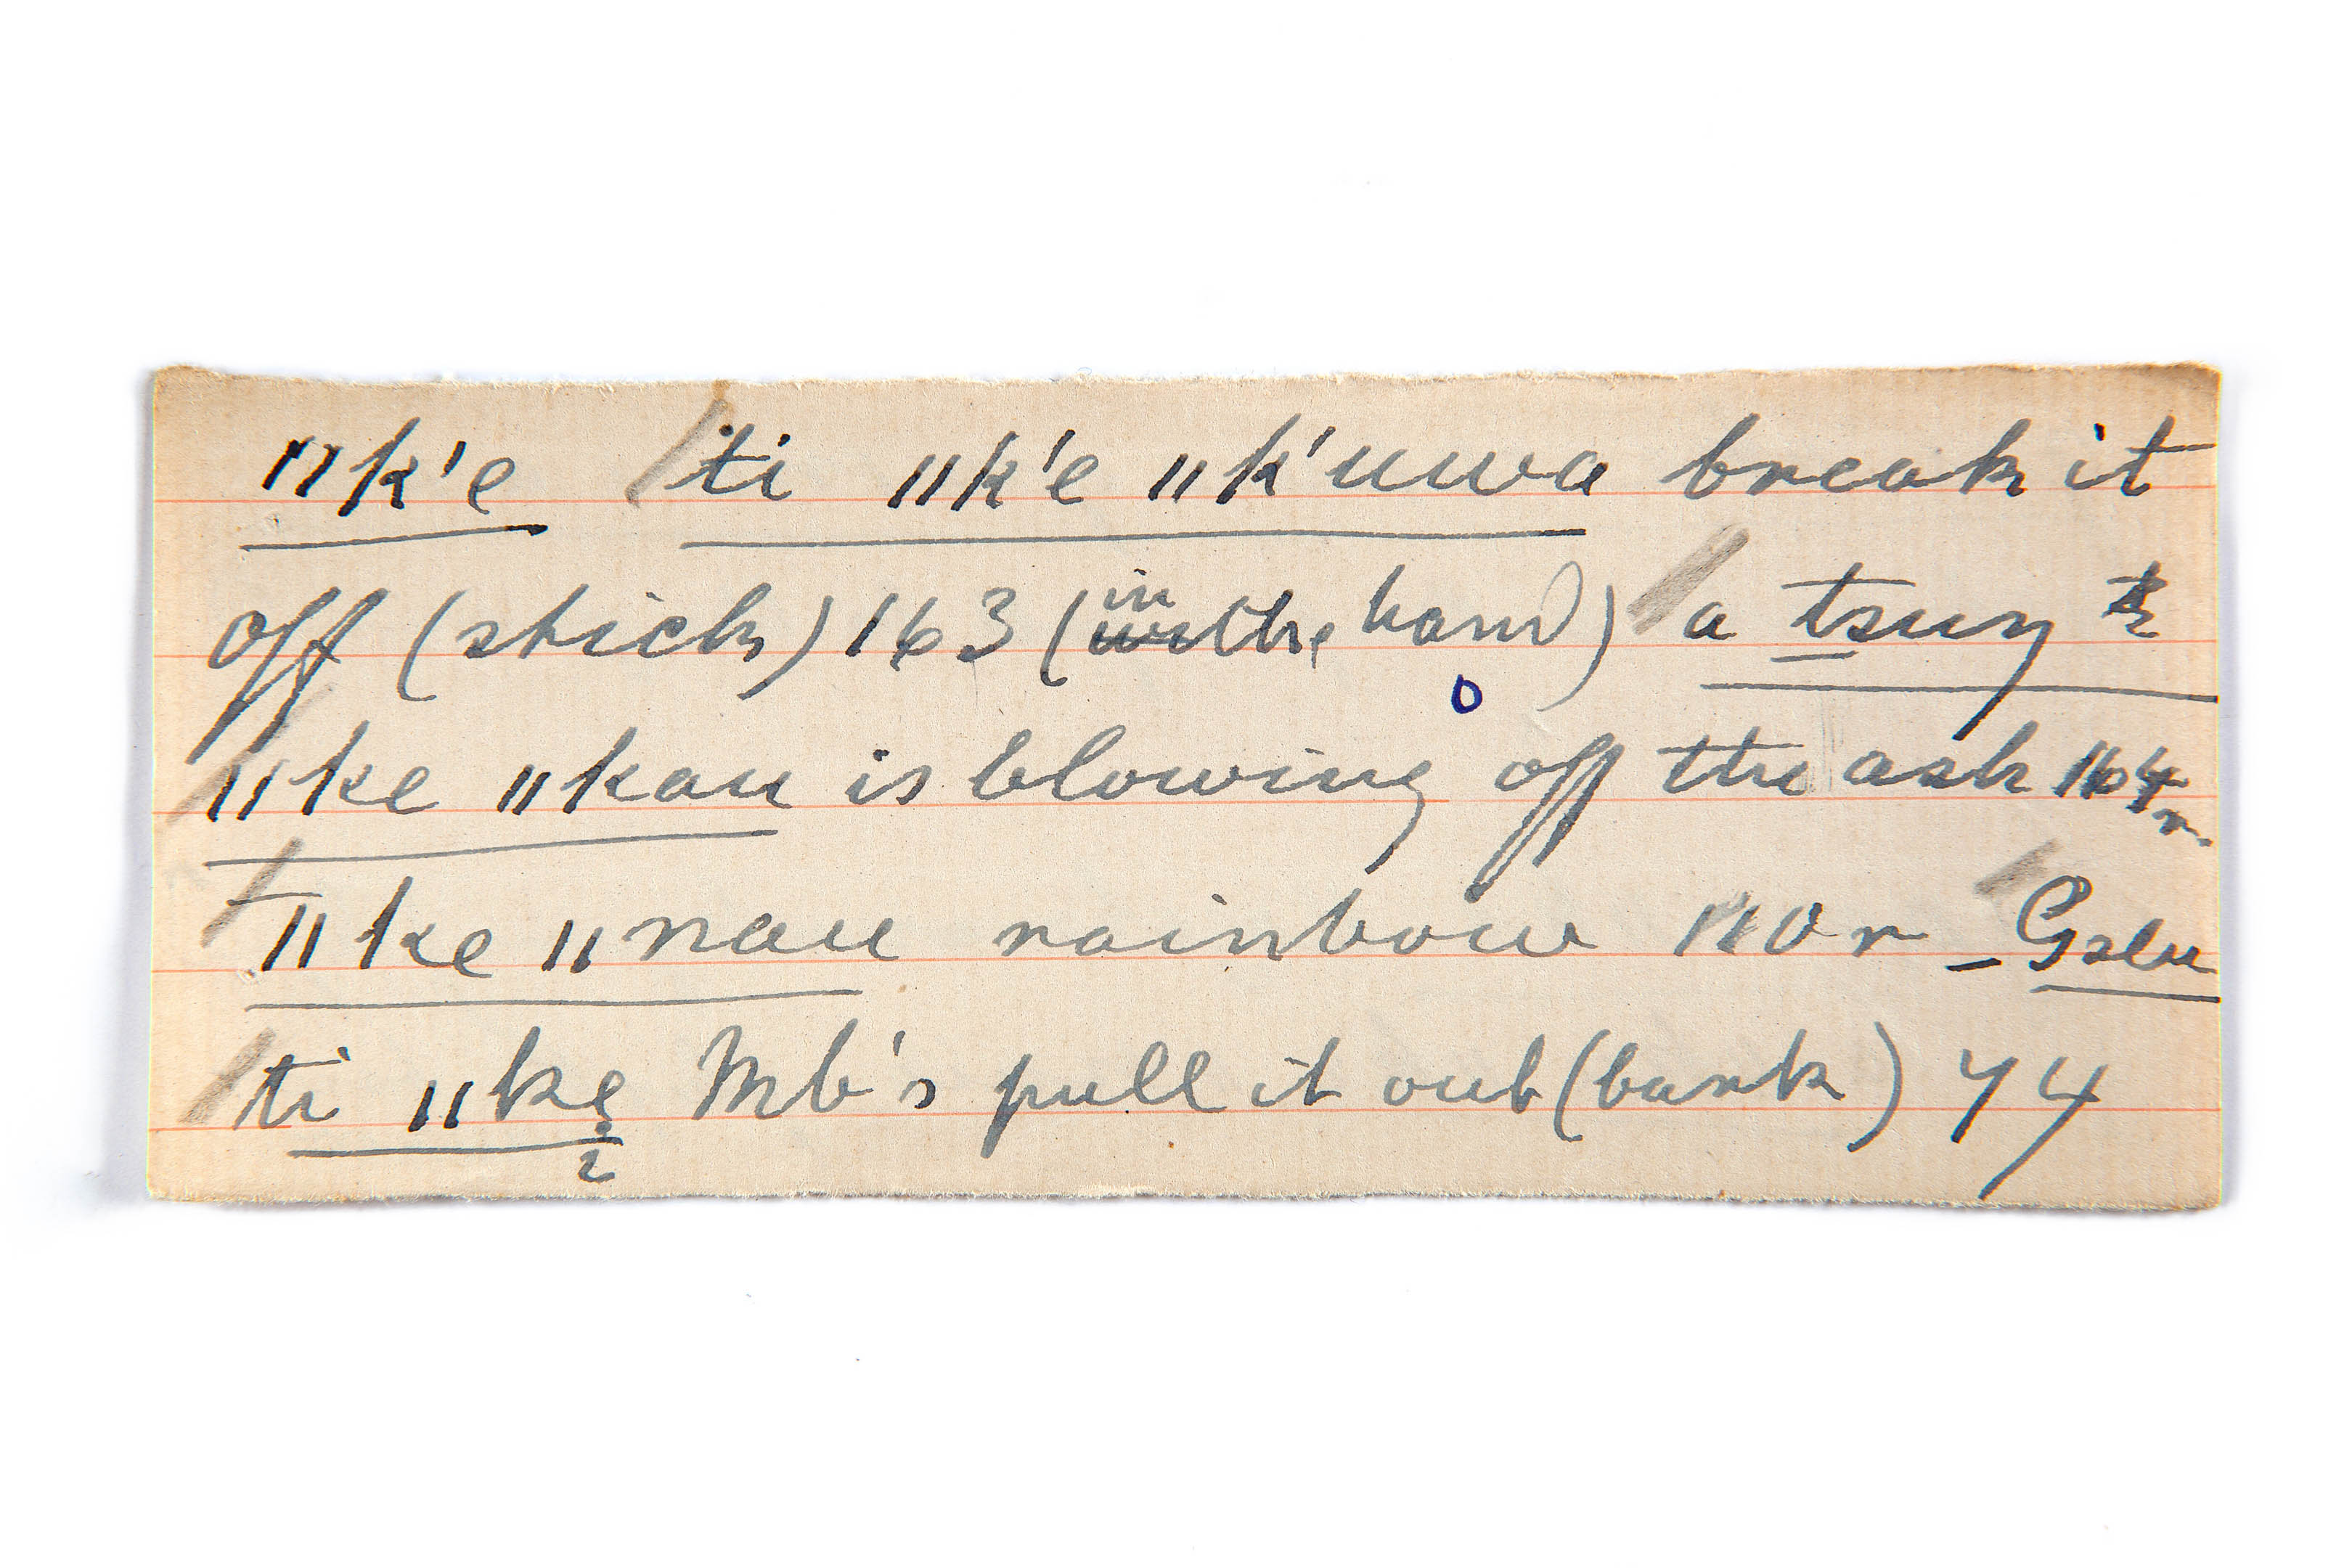 ǁk'e ti ǁk'e ǁk'uwa break it
off (stick) 163 (in the hand) a tsuŋ
ǁke ǁkau is blowing off the ash 164 r
ǁke ǁnau rainbow 110 r –
ti ǁkẹ Mb's pull it out (bark) 74